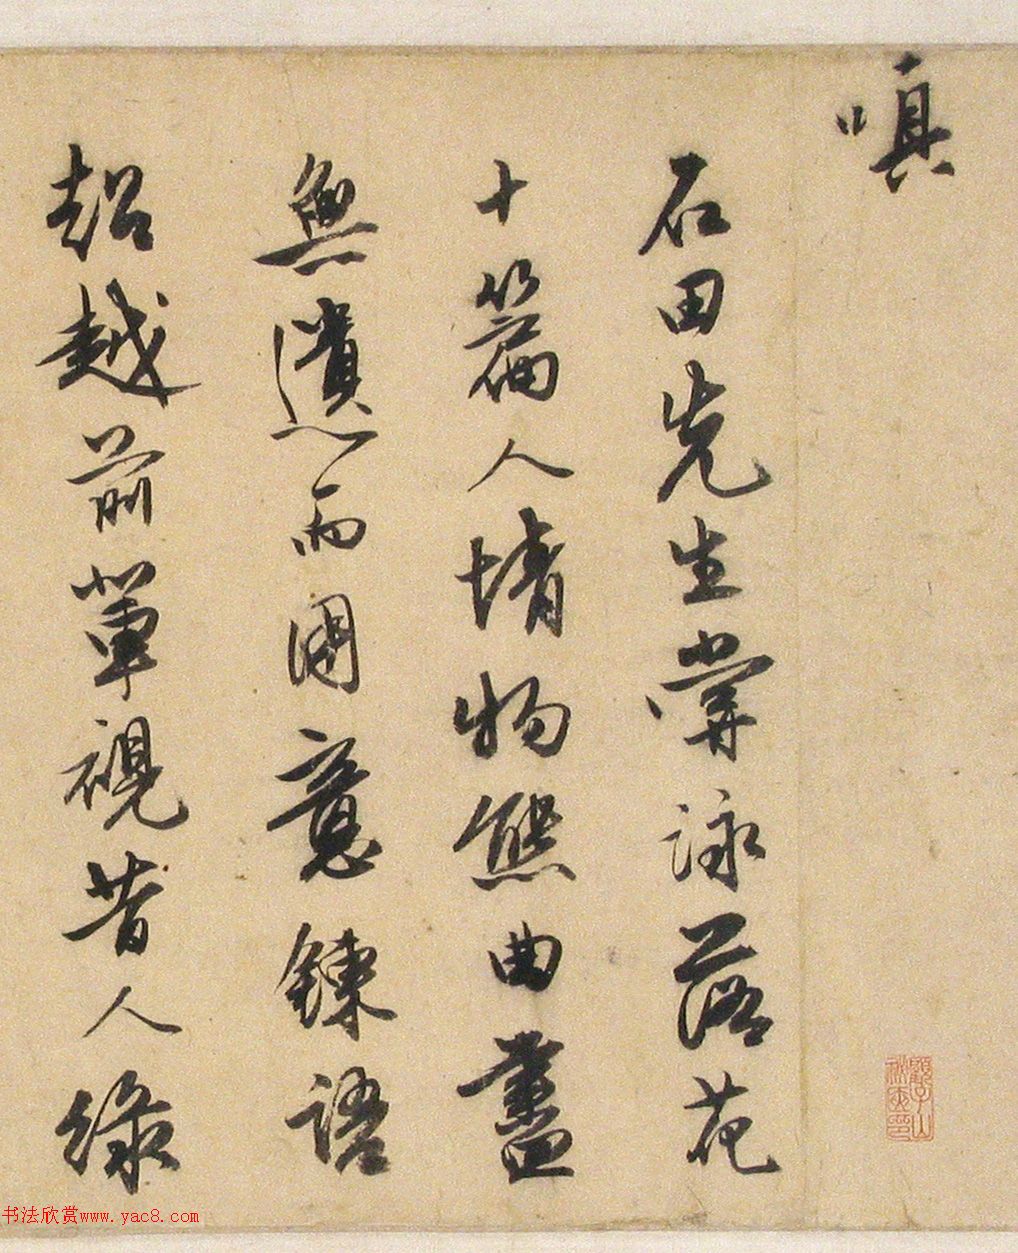 嗔
石田先生嘗詠落花
十篇人情物態曲盡
無遺而用意鍊語
超越前輩視昔人綠
書法欣賞www.yac8.com